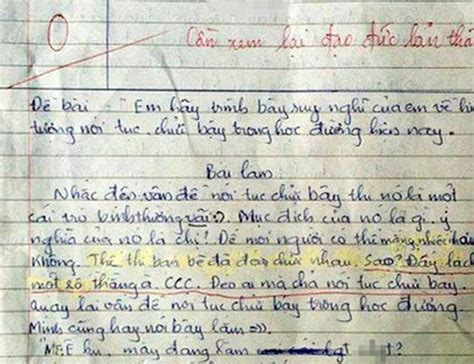 0
Cần xem lại đạo đức bản thâ
Đề bài: "Em hãy trình bày suy nghĩ của em về hi
tượng nói tục, chửi bậy trong học đường hiện nay.
Bài làm
Nhắc đến vấn đề nói tục chửi bậy thì nó là một
cái trò bình thường vãi :). Mục đích của nó là gì, ý
nghĩa của nó là chi! Để mọi người có thể mắng nhiếc nhau
Không. Thế thì bạn bè đã đéo chửi nhau. Sao? Đấy là c
một số thằng à. CCC. Đéo ai mà chả nói tục chửi bậy.
quay lại vấn đề nói tục chửi bậy trong học đường.
Mình cũng hay nói bậy lắm =)).
ku, mày đang làm